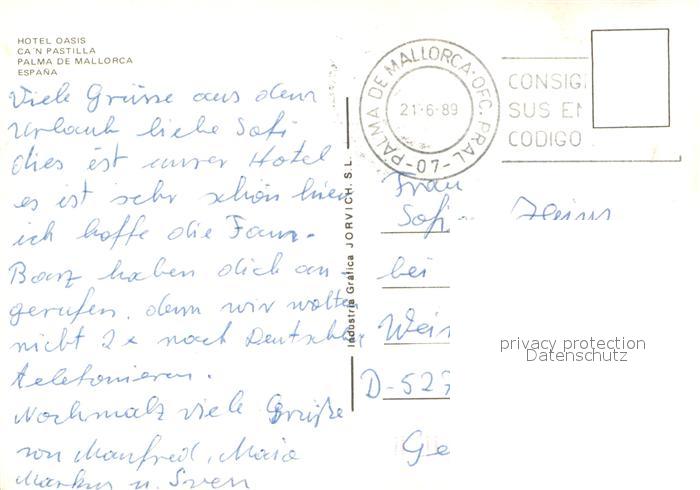 HOTEL OASIS
CA'N PASTILLA
PALMA DE MALLORCA
ESPAÑA
Viele Grüsse aus dem
Urlaub liebe Sofi
dies ist unser Hotel
es ist sehr schön hier
ich hoffe die Fam.
Barz haben dich an-
gerufen, denn wir wollten
nicht 2x nach Deutschl.
telefonieren.
Nochmalz viele Grüße
von Manfred, Maia
Markus u. Sven
Industria Gráfica JORVICH, S.L.
PALMA DE MALLORCA·OFC. PRAL
21-6-89
-07-
CONSIG
SUS EN
CODIGO
Frau
Sofi
bei
Wei
D-527
Ge
privacy protection
Datenschutz